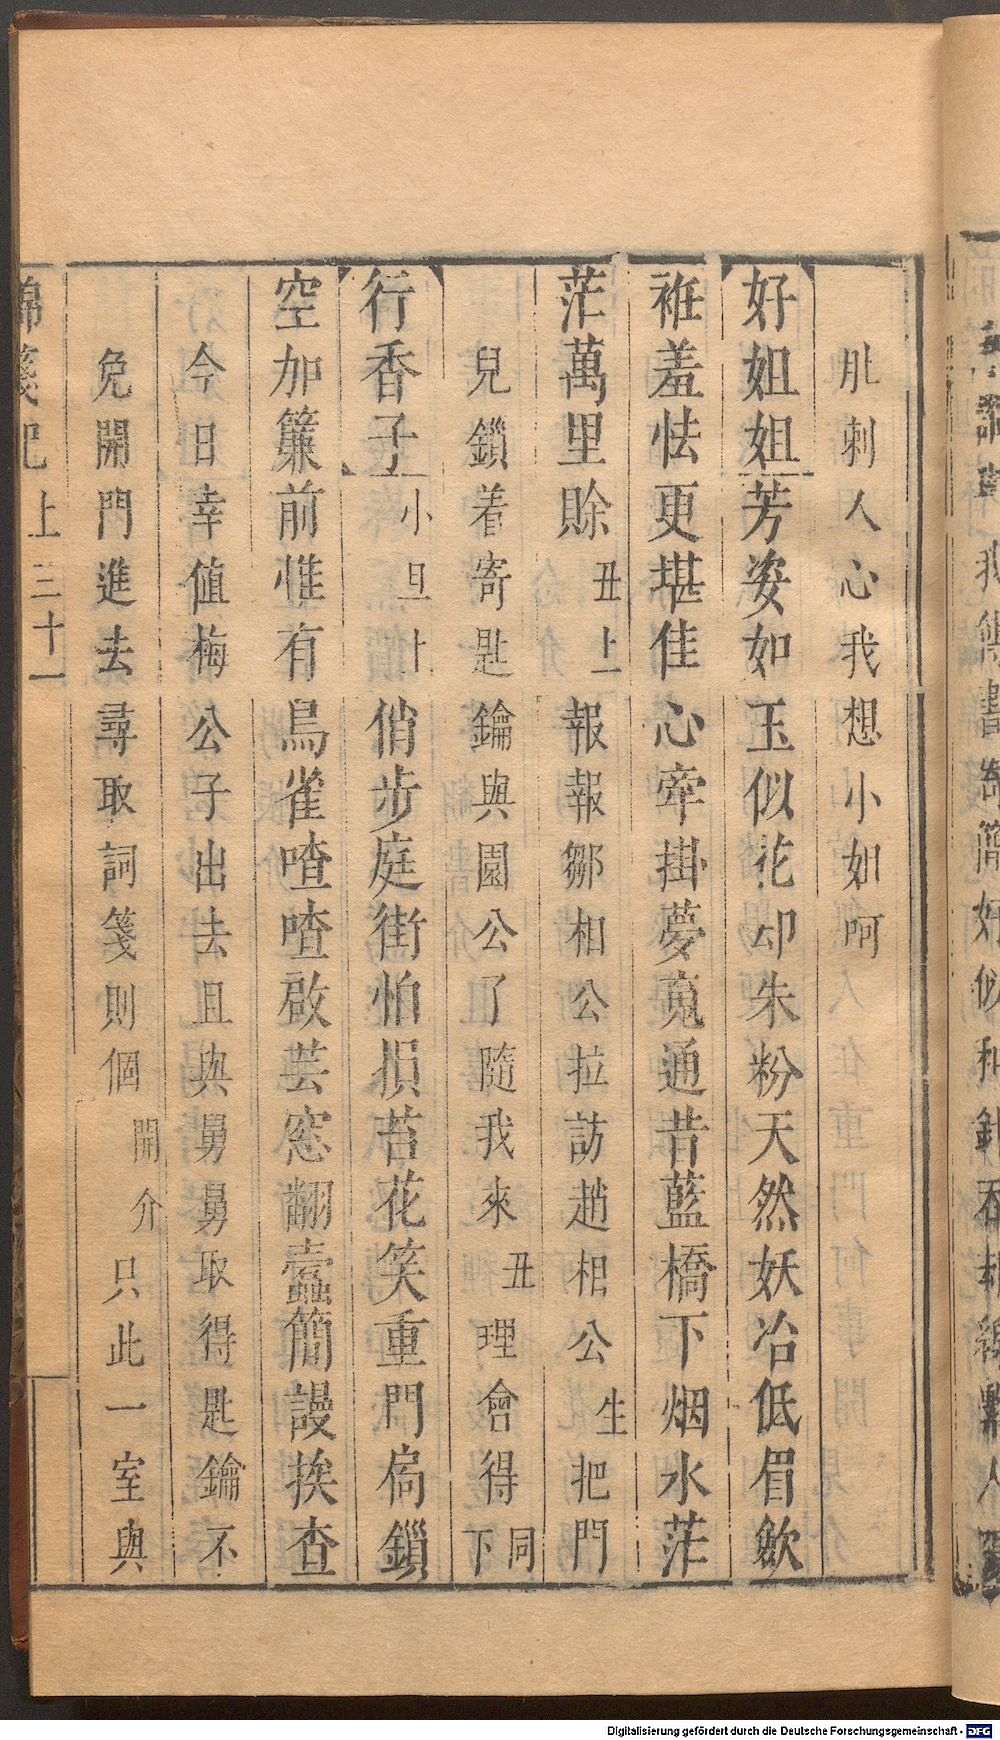 肚刺人心我想小如呵
好姐姐芳姿如玉似花却朱粉天然妖冶低眉歛
袵羞怯更堪佳心牽掛夢䰟通昔藍橋下烟水茫
茫萬里賒丑上報報鄒相公拉訪趙相公生把門
兒鎖着寄匙鑰與園公了隨我來丑理會得同下
行香子小旦上俏步庭街怕損苔花笑重門扃鎖
空加簾前惟有烏雀喳喳啟芸窓翻蠹簡謾挨查
今日幸值梅公子出去且與舅舅取得匙鑰不
免開門進去尋取詞箋則個開介只此一室與
錦箋記上三十一
Digitalisierung gefördert durch die Deutsche Forschungsgemeinschaft - DFG